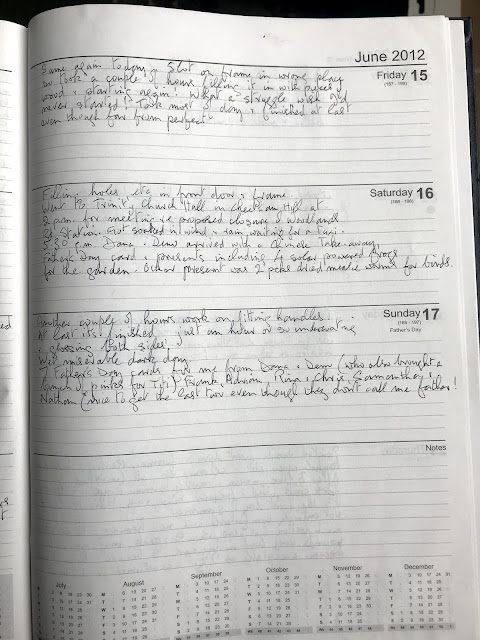 June 2012
Friday 15
Same again today. Slot on frame in wrong place
so took a couple of hours filling it in with pieces
wood & starting again. What a struggle wish I'd
never started! Took most of day & finished at last
even though far from perfect.
Saturday 16
Filling holes etc in front door & frame.
Went to Trinity Church Hall in Cheetham Hill at
p.m. for meeting re proposed closure of Woodlands
Rd Station. Got soaked in wind & rain waiting for a taxi.
5.30 p.m. Dana & Dem arrived with a Chinese Take-away,
Fathers Day card & presents including 4 solar powered frogs
for the garden. Other present was 2 pcks dried meal worms for birds.
Sunday 17
Father's Day
Another couple of hours work on fitting handles.
At last it's finished - just an hour or so undercoating
& glossing both sides!
Wet miserable dark day.
7 Father's Day cards for me from Dana & Dem (who also brought a
bunch of pinks for Titi) Frank, Adrian, Rina, Chris, Samantha &
Nathan (nice to get the last two even though they don't call me father!
Notes
July
August
September
October
November
December